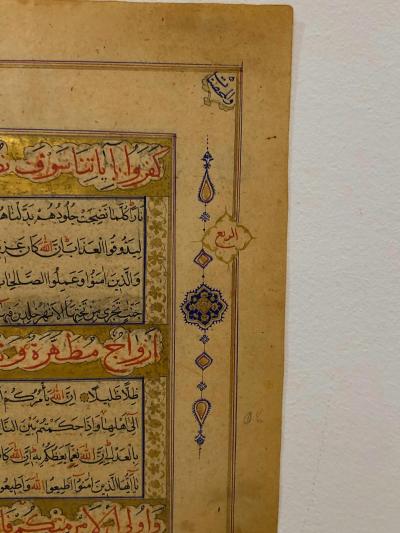 والمحصنات
كفروا بآياتنا سوف
نارا كلما نضجت جلودهم بدلناهم
الربع
ليذوقوا العذاب ان الله كان عزيز
والذين آمنوا وعملوا الصالحات
جنات تجري من تحتها الانهار خالدين فيها
ازواج مطهرة و
ظلا ظليلا ان الله يأمركم
الى اهلها واذا حكمتم بين الناس
بالعدل ان الله نعما يعظكم به ان الله كان
يا ايها الذين آمنوا اطيعوا الله واطيعوا
واولي الامر منكم فان